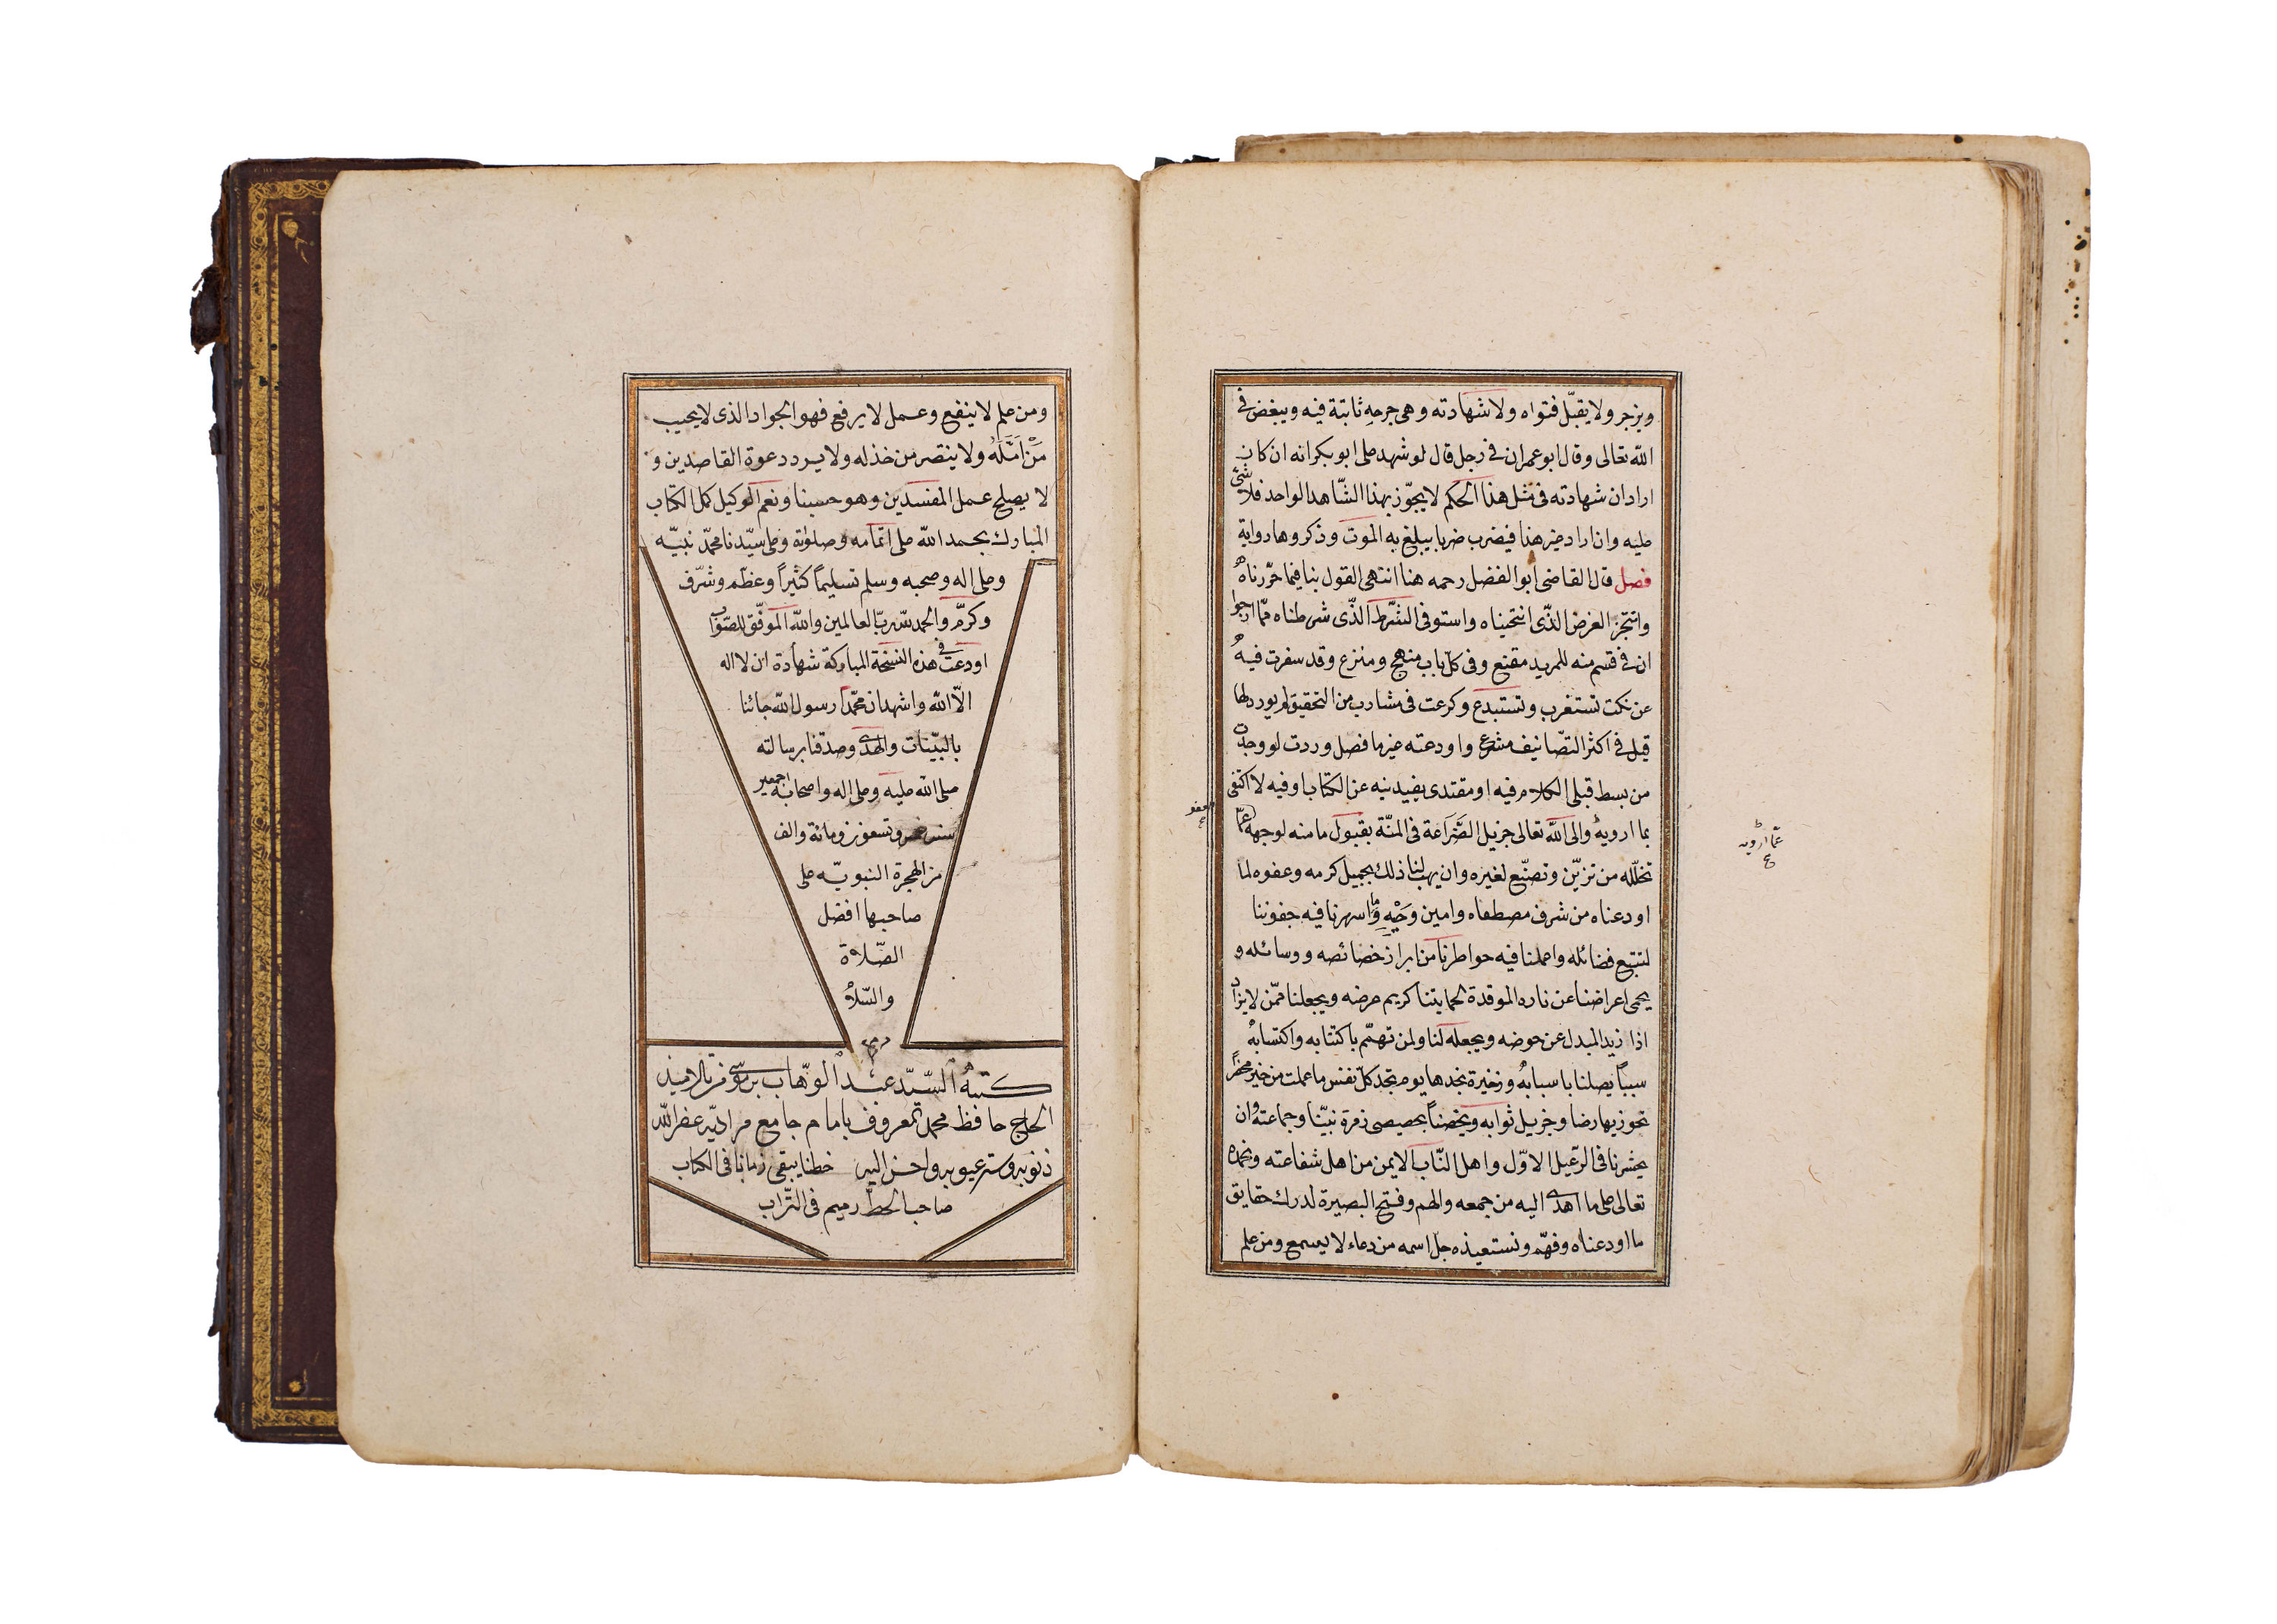 ويزجر ولا يقبّل فتواه ولا شهادته وهى جرحه ثابتة فيه ويبغض فى
الله تعالى وقال ابو عمران فى رجل قال لو شهد على ابو بكر انه ان كان
اراد ان شهادته فى مثل هذا الحكم لا يجوّز بهذا الشّاهد الواحد فلا شئ
عليه وان اراد غير هذا فيضرب ضربا يبلغ به الموت وذكروها رواية
فصل قال القاضى ابو الفضل رحمه هنا انتهى القول بنا فيما حرّرناه
وانتجز الغرض الذّى انتحيناه واستوفى الشّرط الذّى شرطناه ممّا ارجوا
ان فى قسم منه للمريد مقنع وفى كل باب منهج ومنزع وقد سفرت فيه
عن نكت تستغرب وتستبدع وكرعت فى مشارب من التحقيق لم يورد لها
قبل فى اكثر التصّانيف مشرع واودعته غير ما فصل وردت لو وجدت
من بسط قبلى الكلام فيه او مقتدى يفيدنيه عن الكتاب او فيه لاكتفى
بما ارويه والى الله تعالى جزيل الضّراعة فى المنّة بقبول ما منه لوجهه عمّا
تخلّله من تزيّن وتصنّع لغيره وان يهب لنا ذلك بجميل كرمه وعفوه لما
اودعناه من شرف مصطفاه وامين وحيه وما اسهرنا فيه جفوننا
لتتبع فضائله واعملنا فيه خواطرنا من ابراز خصائصه ووسائله و
يحمى اعراضنا عن ناره الموقدة لحمايتنا كريم عرضه ويجعلنا ممّن لا يزاد
اذا زيد المبدل عن حوضه ويجعله لنا ولمن تهمّم باكتتابه واكتسابه
سببا يصلنا باسبابه وذخيرة نجدها يوم تجد كلّ نفس ما عملت من خير محضرا
نحوز بها رضا وجزيل ثوابه ويخصّنا بخصيصى زمرة نبيّنا وجماعته وان
يحشرنا فى الرّعيل الاوّل واهل البّاب الايمن من اهل شفاعته ونحمده
تعالى على ما اهدى اليه من جمعه والهم وفتح البصيرة لدرك حقايق
ما اودعناه وفهّم ونستعيذه جل اسمه من دعاء لا يسمع ومن علم
عمّا ارويه
ومن علم لا ينفع وعمل لا يرفع فهو الجواد الذى لا يخيب
من امّله ولا ينتصر من خذله ولا يردد دعوة القاصدين و
لا يصلح عمل المفسدين وهو حسبنا ونعم الوكيل كمل الكتاب
المبارك بحمد الله على اتمامه وصلوته وعلى سيّدنا محمّد نبيّه
وعلى اله وصحبه وسلم تسليما كثيرا وعظم وشرّف
وكرمّ والحمد لله ربّ العالمين والله الموفّق للصّواب
اودعت فى هذه النسخة المباركة شهادة ان لا اله
الاّ الله واشهد ان محمّدا رسول الله جائنا
بالبيّنات والهدى وصدقنا برسالته
صلى الله عليه وعلى اله واصحابه اجمعين
سنه خمس وتسعون ومائة والف
من الهجرة النبويّه على
صاحبها افضل
الصّلاة
والسّلام
كتبه السّيّد عبد الوهّاب بن موسى من تلاميذ
الحاج حافظ محمد المعروف بامام جامع مراديّه غفر الله
ذنوبه وستر عيوبه واحسن اليه خطنا يبقى زمانا فى الكتاب
صاحب الخطّ رميم فى التّراب